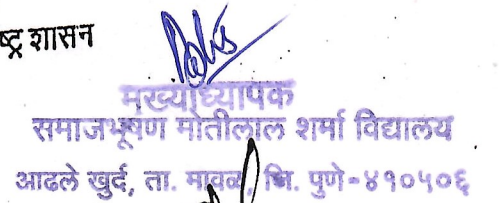 ष्ट्र शासन
मुख्याध्यापक
समाजभूषण मोतीलाल शर्मा विद्यालय
आढले खुर्द, ता. मावळ, जि. पुणे-४१०५०६